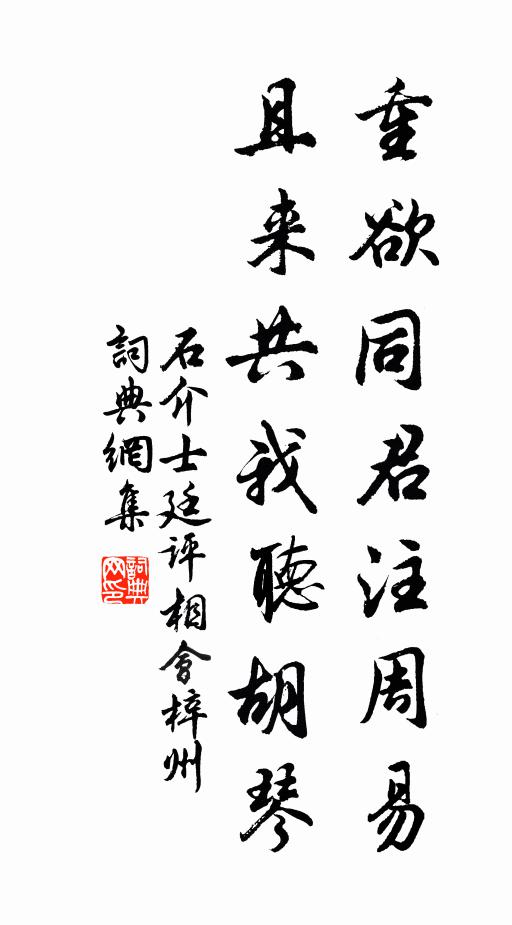 重欲同君注周易
且来共我聽胡琴
石介士廷評相會梓州
詞典網集
詞典網印